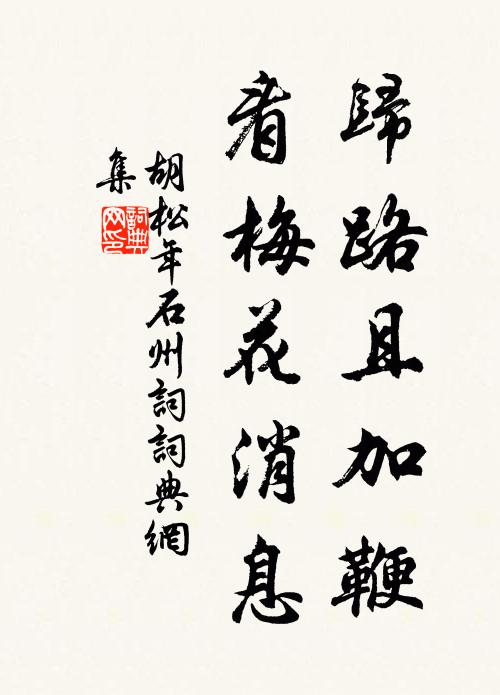 歸路且加鞭
看梅花消息
胡松年石州詞詞典網
集
詞典網印